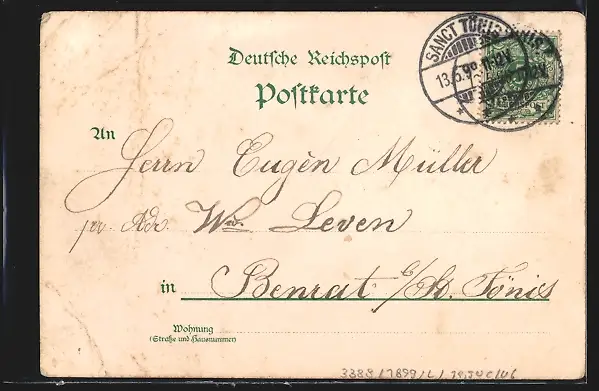 Deutsche Reichspost
Postkarte
SANCT TÖNIS
13.5.99 11-12V
An
Herrn Eugèn Müller
pr. Adr. Wwe. Leven
in Benrat b/St. Tönis
Wohnung
(Straße und Hausnummer)